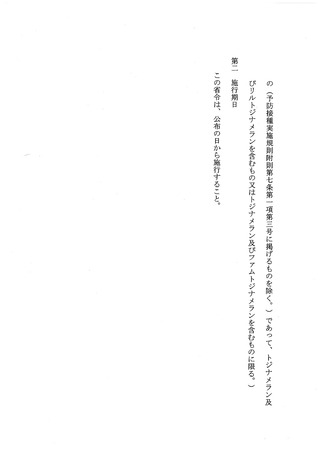 の（予防接種実施規則附則第七条第一項第三号に掲げるものを除く。）であって、トジナメラン及
びリルトジナメランを含むもの又はトジナメラン及びファムトジナメランを含むものに限る。）
第二　施行期日
この省令は、公布の日から施行すること。